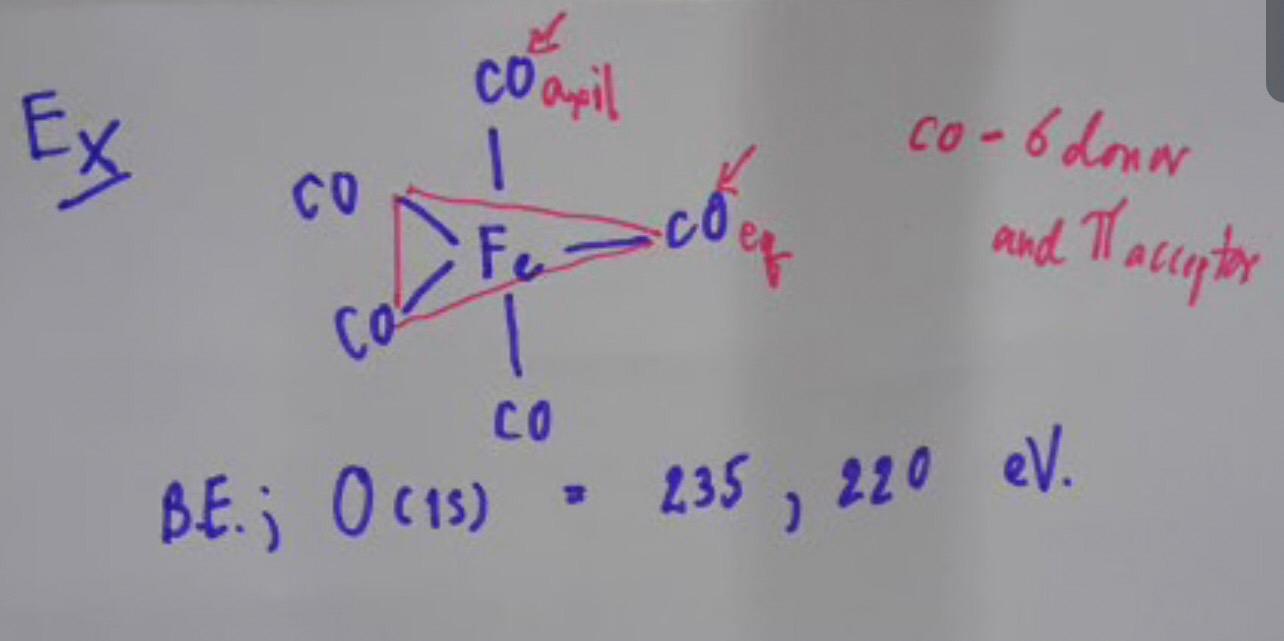 Ex
CO axil
CO
Fe
CO eq
CO
CO
CO - σ donor
and π acceptor
B.E.; O(1s) = 235, 220 eV.